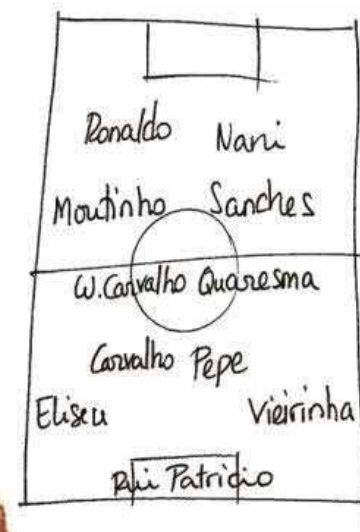 Ronaldo Nani
Moutinho Sanches
W.Carvalho Quaresma
Carvalho Pepe
Eliseu Vieirinha
Rui Patricio